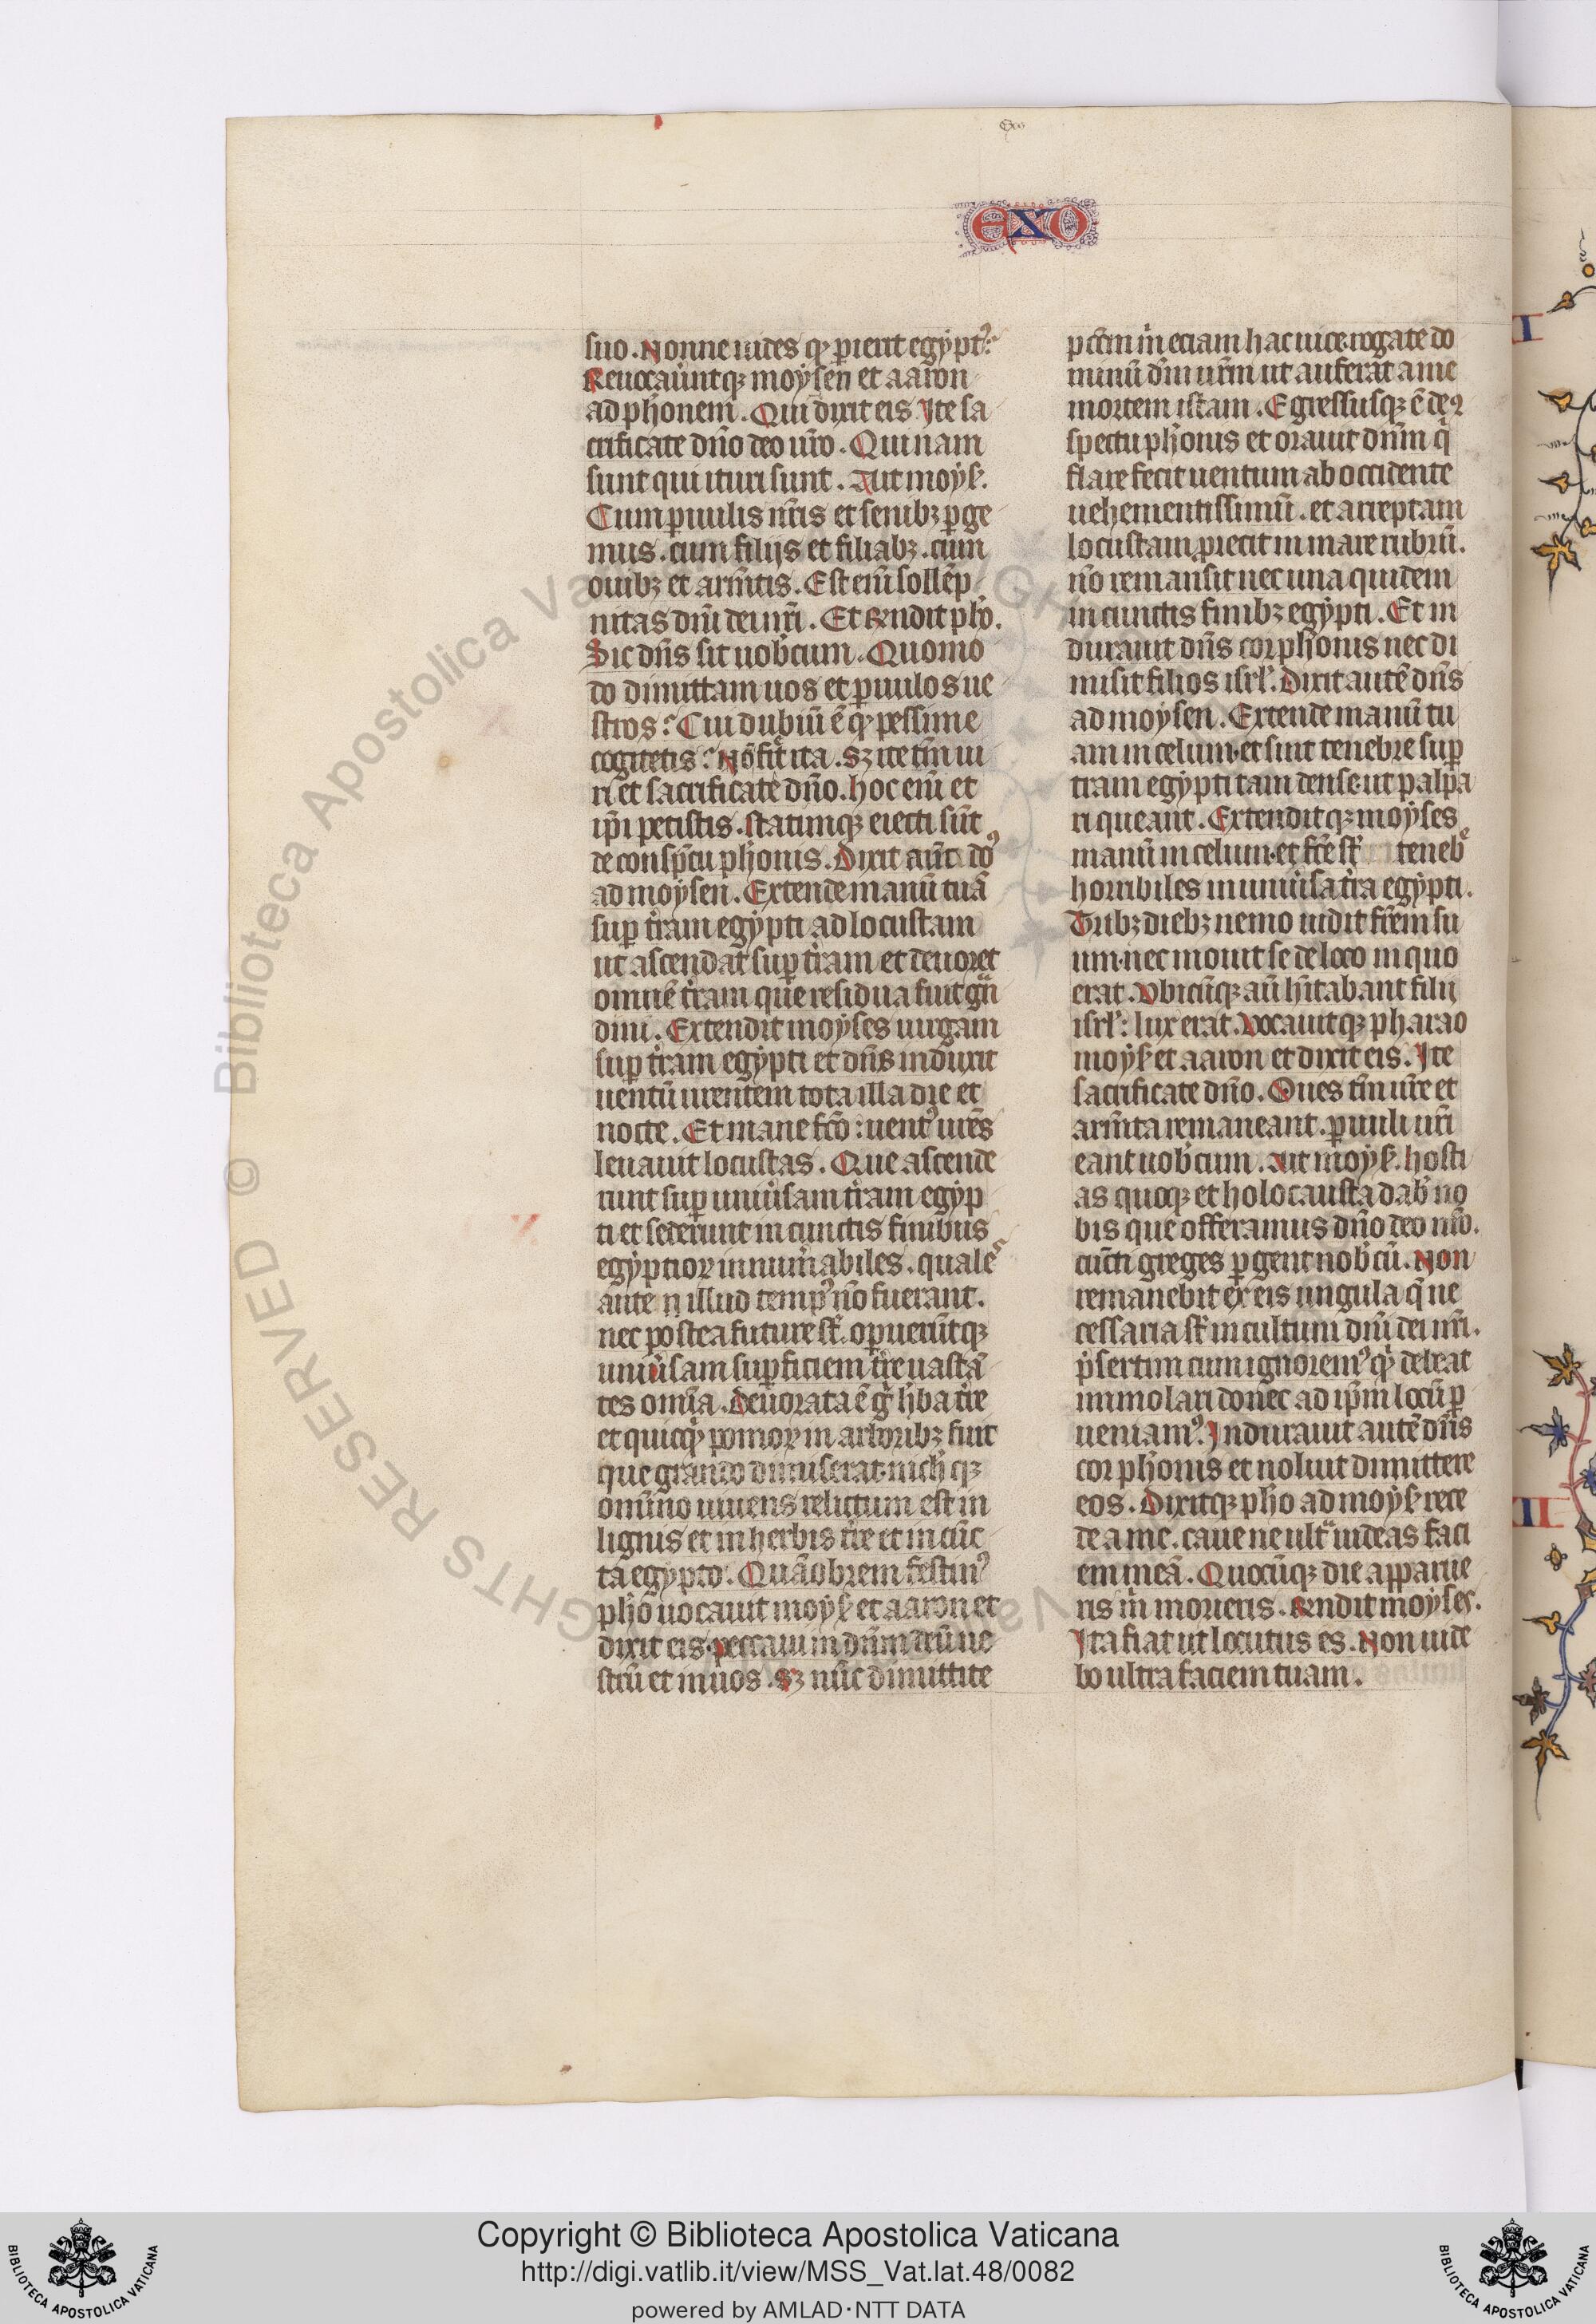 Exo
EXO
suo. Nonne uides qꝫ perierit egyptꝰ?
Reuocauˉuntqꝫ moysen et aaron
ad ph̄onem. Qui dixit eis. Ite sa
crificate dn̄o deo ur̄o. Quinam
sunt qui ituri sunt. Ait moyẜ.
Cum ꝑuulis nr̄is et senibꝫ ꝑge
mus. cum filijs et filiabꝫ. cum
ouibꝫ et arm̄tis. Est eni̅ sollēp
nitas dn̄i dei nr̄i. Et r̄ndit ph̄o.
Sic dn̄s sit uob̄cum. Quomo
do dimittam uos et ꝑuulos ue
stros? Cui dubiū ē qꝫ pessime
cogitetis? Nō fiet ita. Sꝫ ite tm̄ ui
ri et sacrificate dn̄o. hoc eni̅ et
ip̄i petistis. Statimqꝫ eiecti sūt
de conspc̄tu ph̄onis. Dixit aūt dōs
ad moysen. Extende manū tuā
suꝑ tr̄am egypti ad locustam
ut ascendat suꝑ tr̄am et deuoret
omnē tr̄am que residua fuit grā
dini. Extendit moyses uirgam
suꝑ tr̄am egypti et dn̄s induxit
uentū urentem tota illa die et
nocte. Et mane fc̄o: uentꝰ urēs
leuauit locustas. Que ascende
runt suꝑ uniūsam tr̄am egyp
ti et sederunt in cunctis finibus
egyptioꝝ innūabiles. quales
ante illud tempꝰ nō fuerant.
nec postea future sˉt. oꝑuerūtqꝫ
uniūsam suꝑficiem tr̄e uastā
tes omīa. Deuorata ē gͥ h̄ba tr̄e
et quicqͥd pomoꝝ in arboribꝫ fuit
que grando dimiserat. nich̄qꝫ
omīno uiuens relictum est in
lignis et in herbis tr̄e et in cūc
ta egypto. Quāobrem festinꝰ
ph̄o uocauit moyẜ et aaron et
dixit eis. peccaui in dn̄m deū ue
strū et in uos. Sꝫ nūc dimittite
pc̄cm m̄ eciam hac uice. rogate do
minū dm̄ ur̄m ut auferat a me
mortem istam. Egressusqꝫ ē de ꝯ
spectu ph̄onis et orauit dn̄m qͥ
flare fecit uentum ab occidente
uehementissimū. et arreptam
locustam ꝓiecit in mare rubrū.
nō remansit nec una quidem
in cunctis finibꝫ egypti. Et in
durauit dn̄s cor ph̄onis nec di
misit filios isrl̄. Dixit autē dn̄s
ad moysen. Extende manū tu
am in celum. et sint tenebre suꝑ
tr̄am egypti tam dense. ut palpa
ri queant. Extenditqꝫ moyses
manū in celum. et fc̄e sˉt tenebͤ
horribiles in uniūsa tr̄a egypti.
Tribꝫ diebꝫ nemo uidit fr̄em su
um. nec mouit se de loco in quo
erat. Vbicūqꝫ aū h̄itabant filij
isrl̄: lux erat. Vocauitqꝫ pharao
moyẜ et aaron et dixit eis. Ite
sacrificate dn̄o. Oues tm̄ ur̄e et
arm̄ta remaneant. ꝑuuli ur̄i
eant uob̄cum. Ait moyẜ. hosti
as quoqꝫ et holocausta dab̄ no
bis que offeramus dn̄o deo nr̄o.
cūcti greges ꝑgent nob̄cū. Non
remanebit ex eis ungula. q̄ ne
cessaria sˉt in cultum dn̄i dei nr̄i.
p̄sertim cum ignoremꝰ qͥd debeat
immolari donec ad ip̄m locū ꝑ
ueniamꝰ. Indurauit autē dn̄s
cor ph̄onis et noluit dimittere
eos. Dixitqꝫ ph̄o ad moyẜ. rece
de a me. caue ne ultͣ uideas faci
em meā. Quocūqꝫ die apparue
ris m̄ morieris. R̄ndit moyses.
Ita fiat ut locutus es. Non uide
bo ultra faciem tuam.
© Biblioteca Apostolica Vaticana
RIGHTS RESERVED
Copyright © Biblioteca Apostolica Vaticana
http://digi.vatlib.it/view/MSS_Vat.lat.48/0082
powered by AMLAD·NTT DATA
BIBLIOTECA APOSTOLICA VATICANA
BIBLIOTECA APOSTOLICA VATICANA